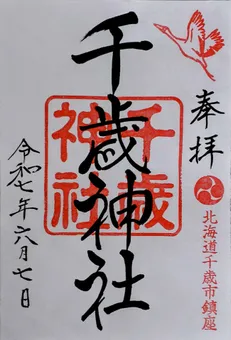 奉拝
北海道千歳市鎮座
千歳神社
千歳神社
令和七年六月七日